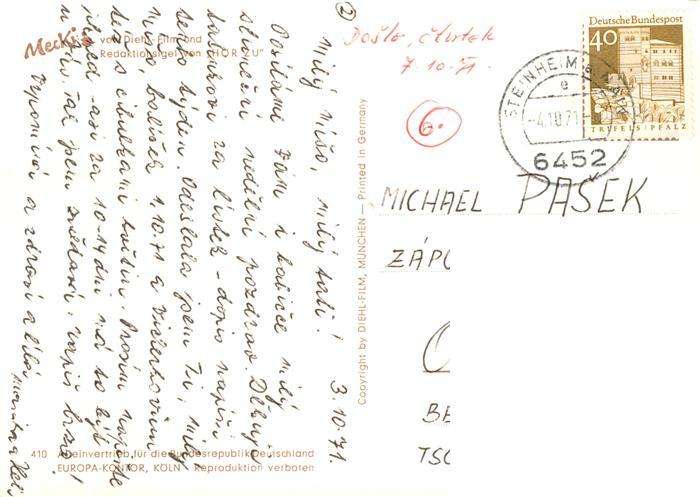 Mecki
von Diehl-Film und
Redaktionsigel von „HÖR ZU"
②
Milý Míšo, milý tati!
3.10.71.
Odsílám Vám i babičce milý
sluneční nedělní pozdrav. Děkuji
za lístek - dopis napíši
týden. Odeslala jsem Ti, milý
balíček 1.10.71 a
s cibulkami květin. Prosím napište
ihned - asi za 10-14 dní má to být
u Vás, tak jsem zvědavá, napiš brzo!
Vzpomíná a zdraví a líbá
410 Alleinvertrieb für die Bundesrepublik Deutschland
EUROPA-KONTOR, KÖLN - Reproduktion verboten
Copyright by DIEHL-FILM, MÜNCHEN — Printed in Germany
Došlo, čtvrtek
7.10.71.
6.
Deutsche Bundespost
40
TRIFELS/PFALZ
STEINHEIM
e
-4.10.71
6452
MICHAEL PASEK
ZÁP
BE
TSC